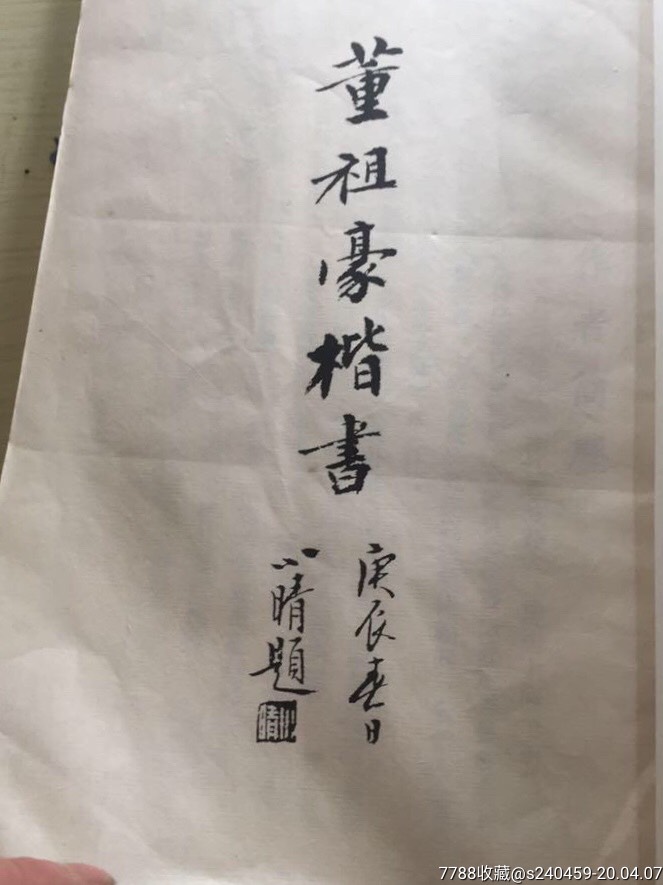 董祖豪楷书
庚辰春日
小晴题
小晴
7788收藏@s240459-20.04.07